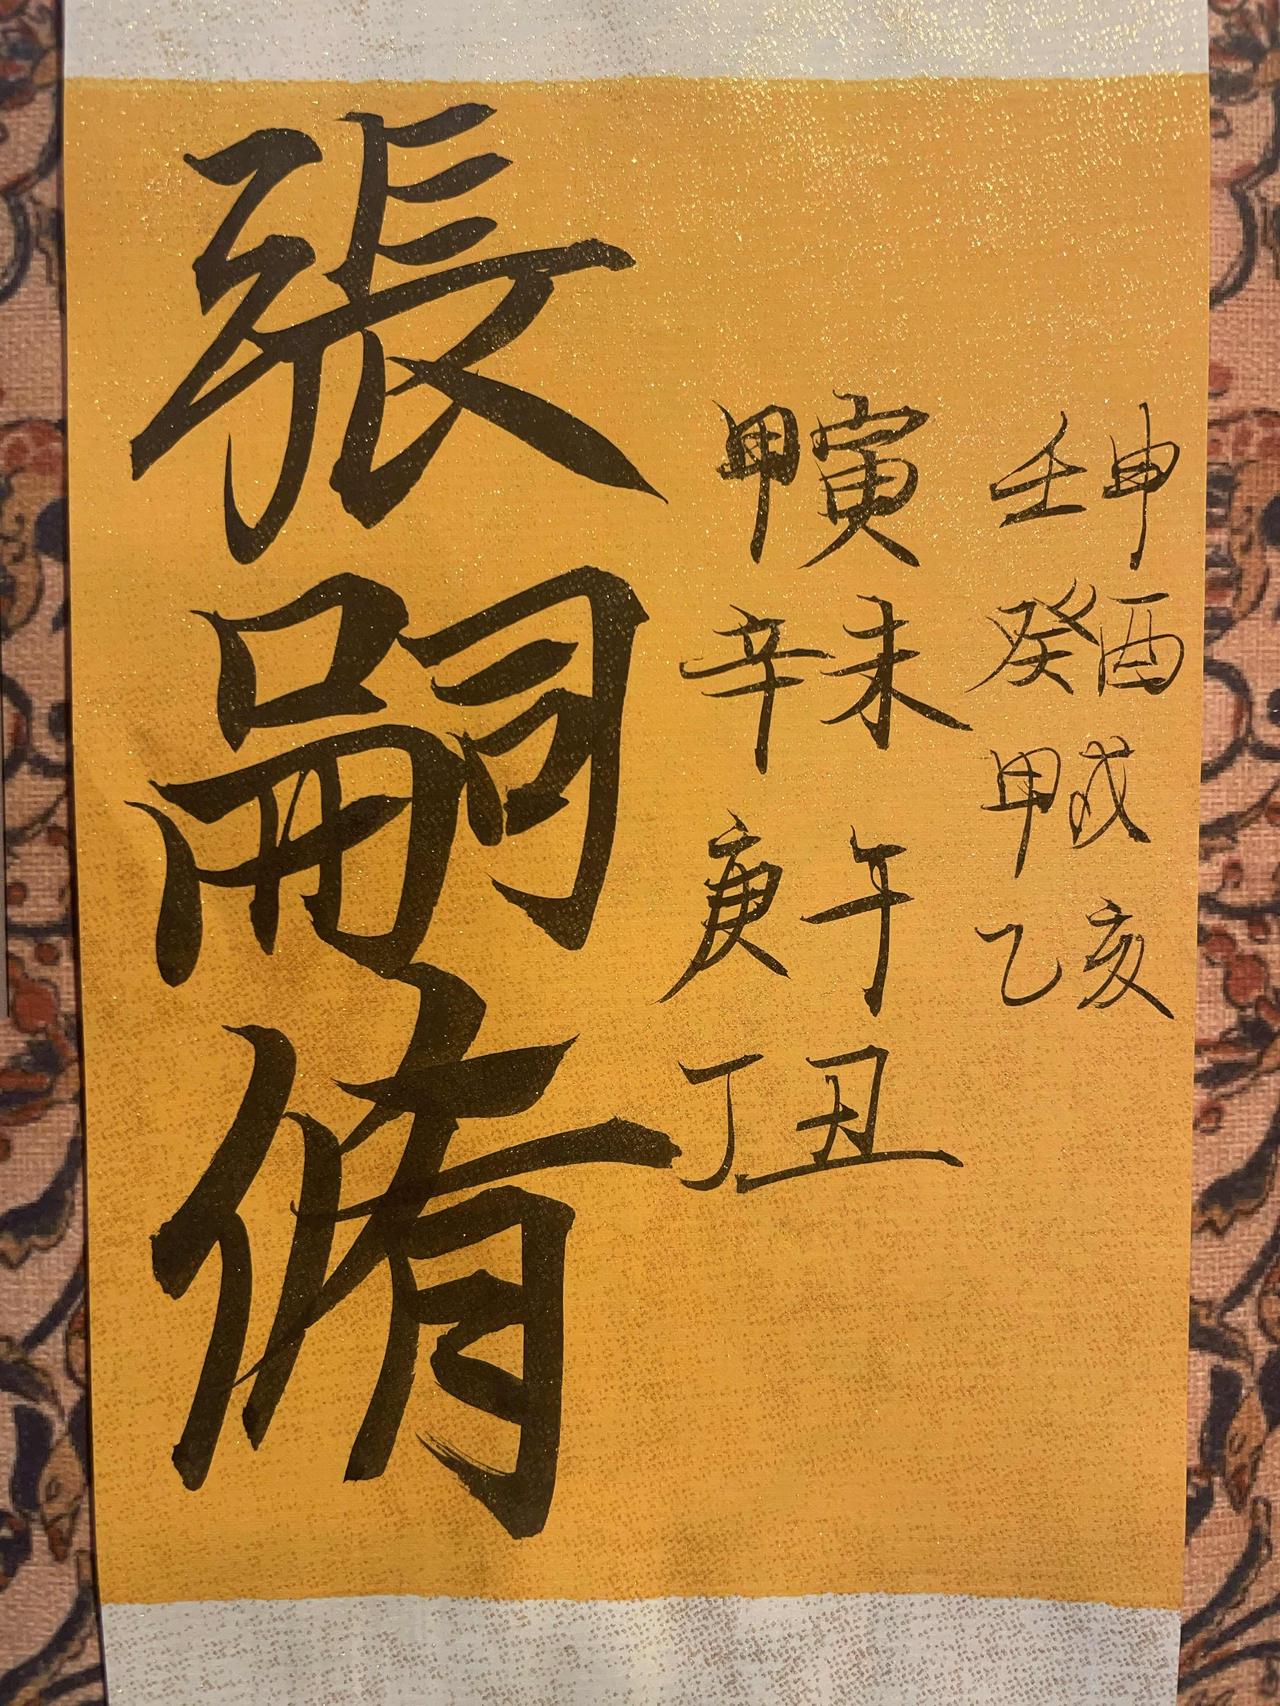 壬申癸酉甲戌乙亥
甲寅辛未庚午丁丑
張嗣脩